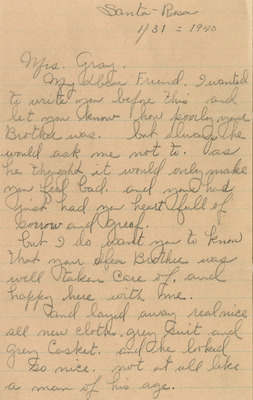 Santa-Rosa
1/31 = 1940
Mrs. Gray.
My dear Friend. I wanted
to write you before this and
let you know how poorly your
Brother was. but always he
would ask me not to. as
he thought it would only make
you feel bad. and you had
just had your heart full of
sorrow and greef.
but I do want you to know
that your dear Brother was
well taken care of. and
happy here with me.
and layed away real nice
all new cloths. grey suit and
grey Casket. and he looked
so nice. not at all like
a man of his age.